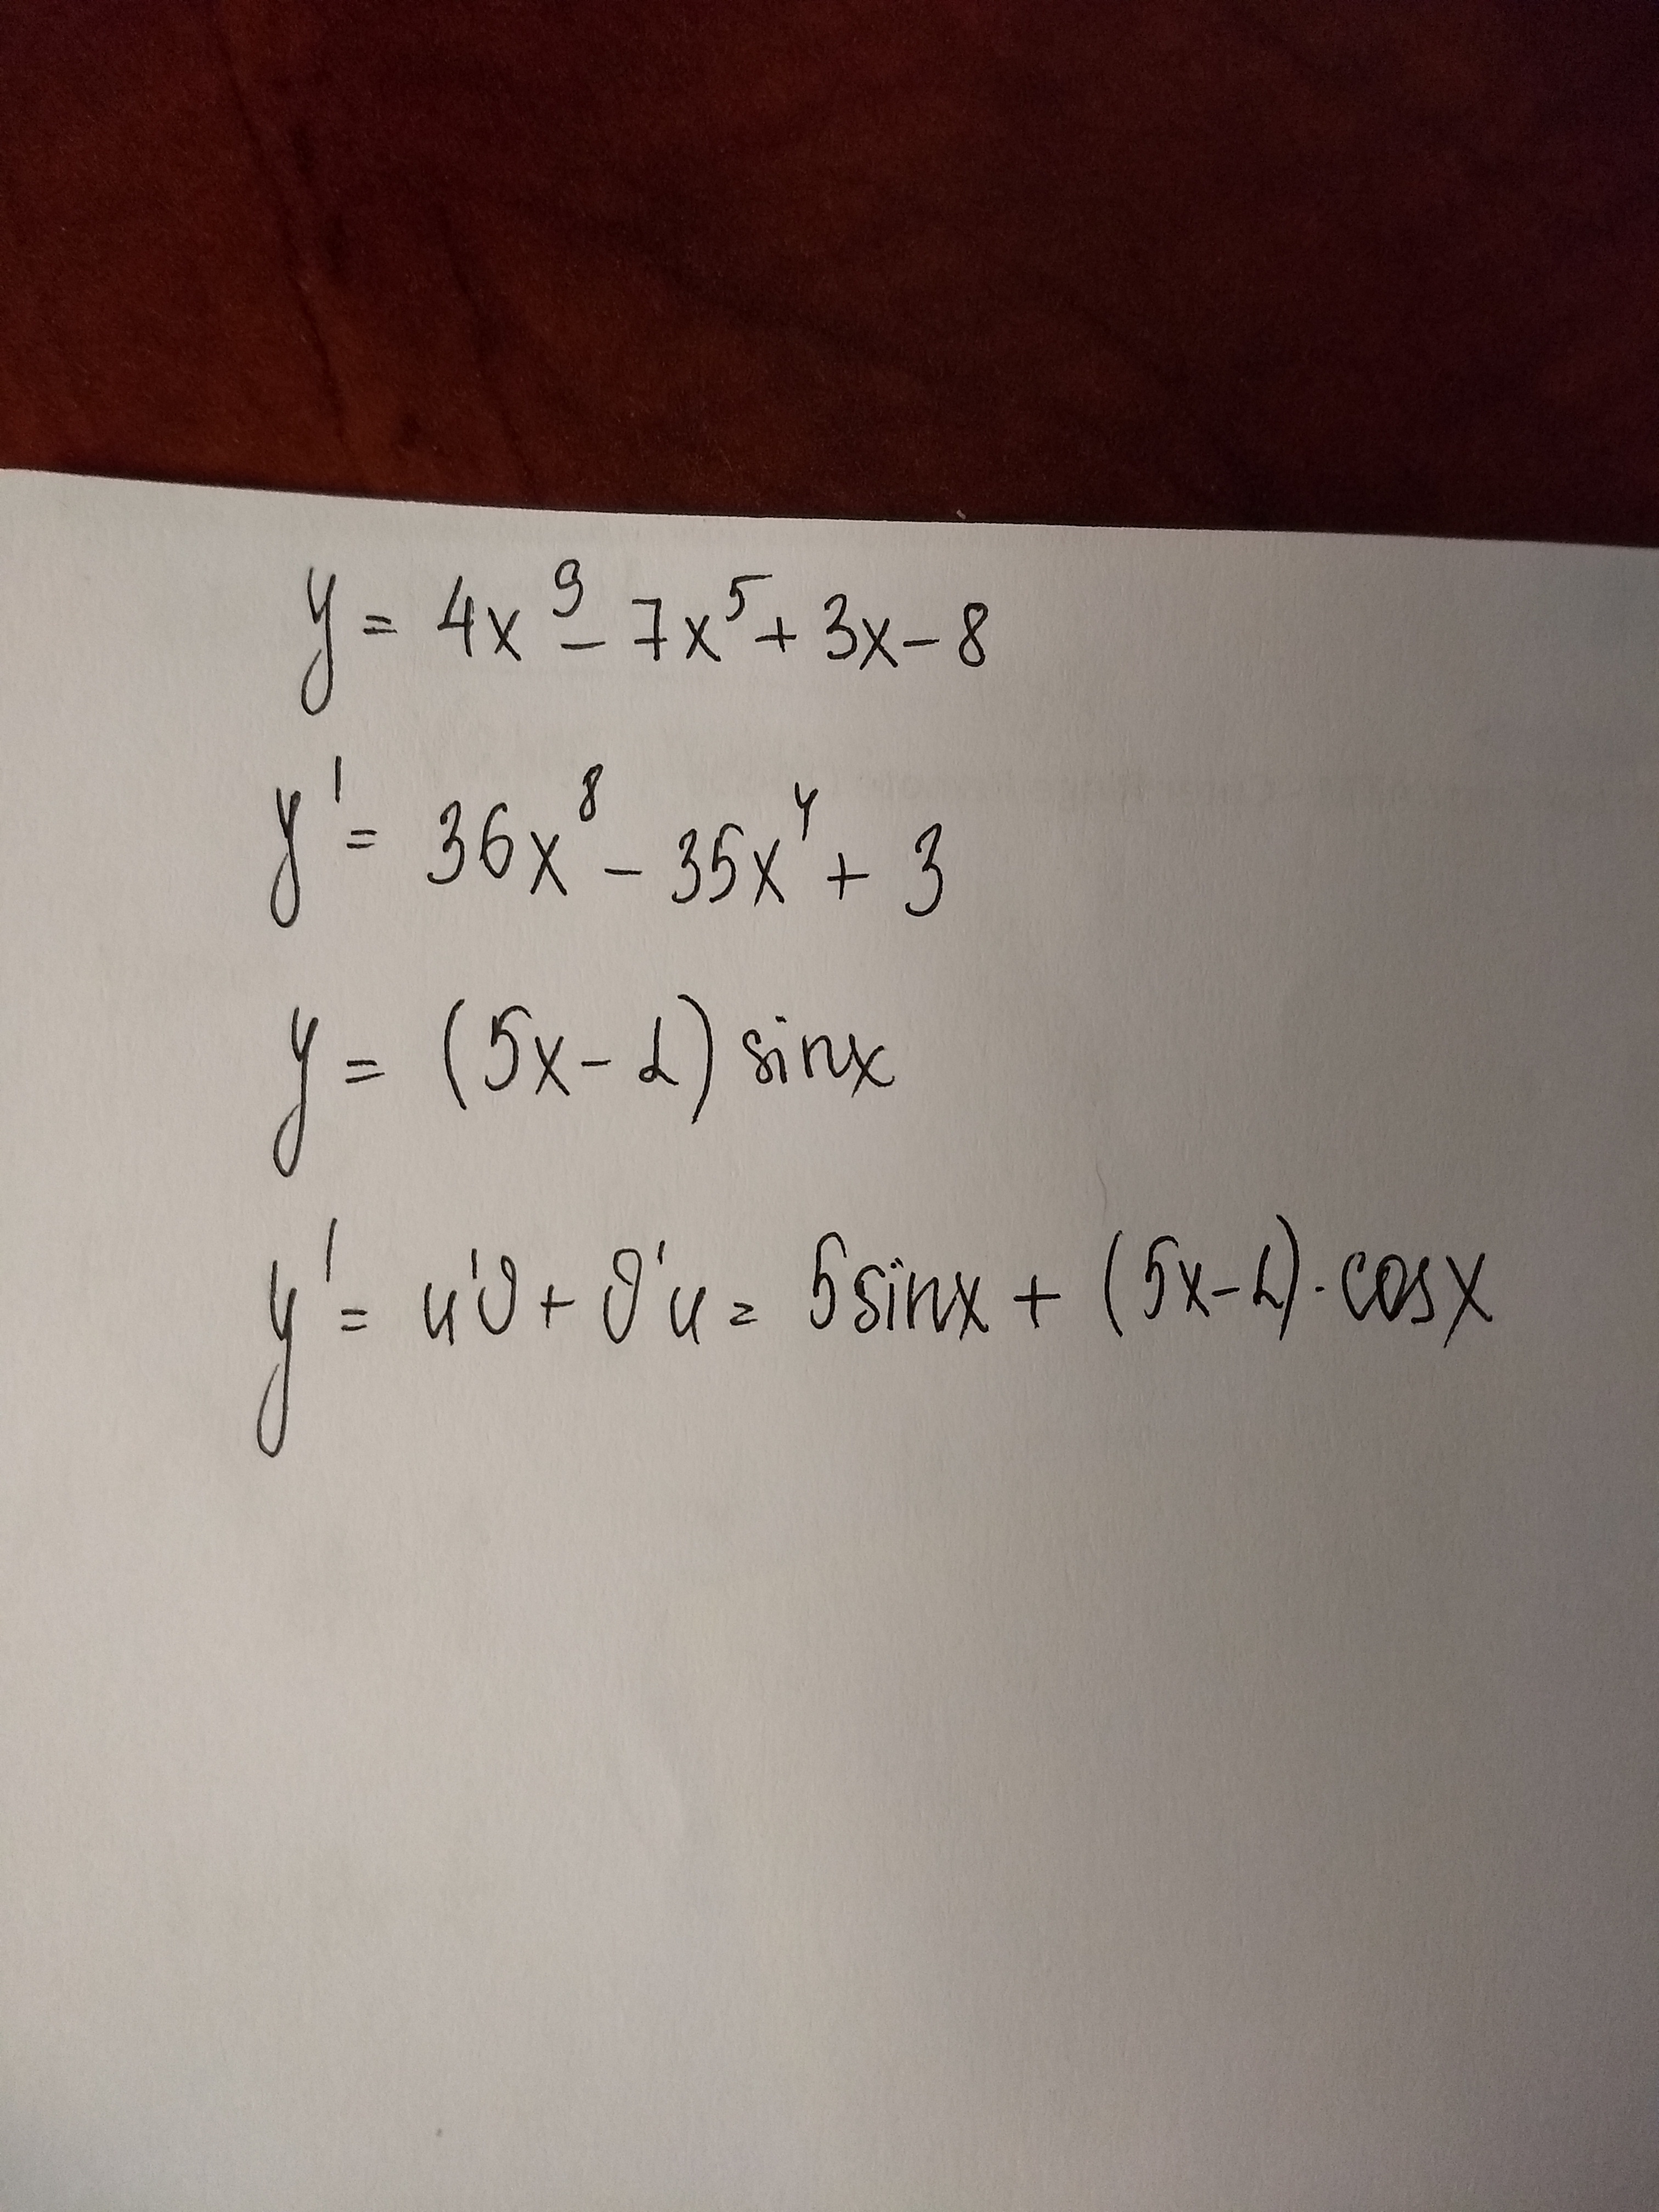 y = 4x⁹ - 7x⁵ + 3x - 8
y' = 36x⁸ - 35x⁴ + 3
y = (5x - 2) sinx
y' = u'v + v'u = 5sinx + (5x-2)·cosx